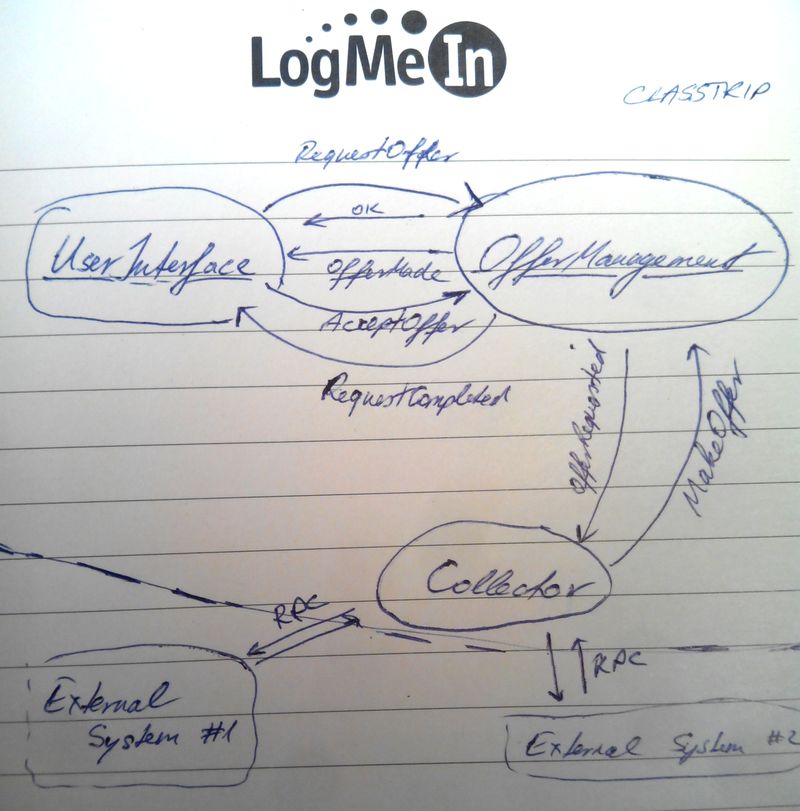 LogMeIn
CLASSTRIP
RequestOffer
OK
UserInterface
OfferManagement
OfferMade
AcceptOffer
RequestCompleted
OfferRequested
MakeOffer
Collector
RPC
RPC
External
System #1
External System #2